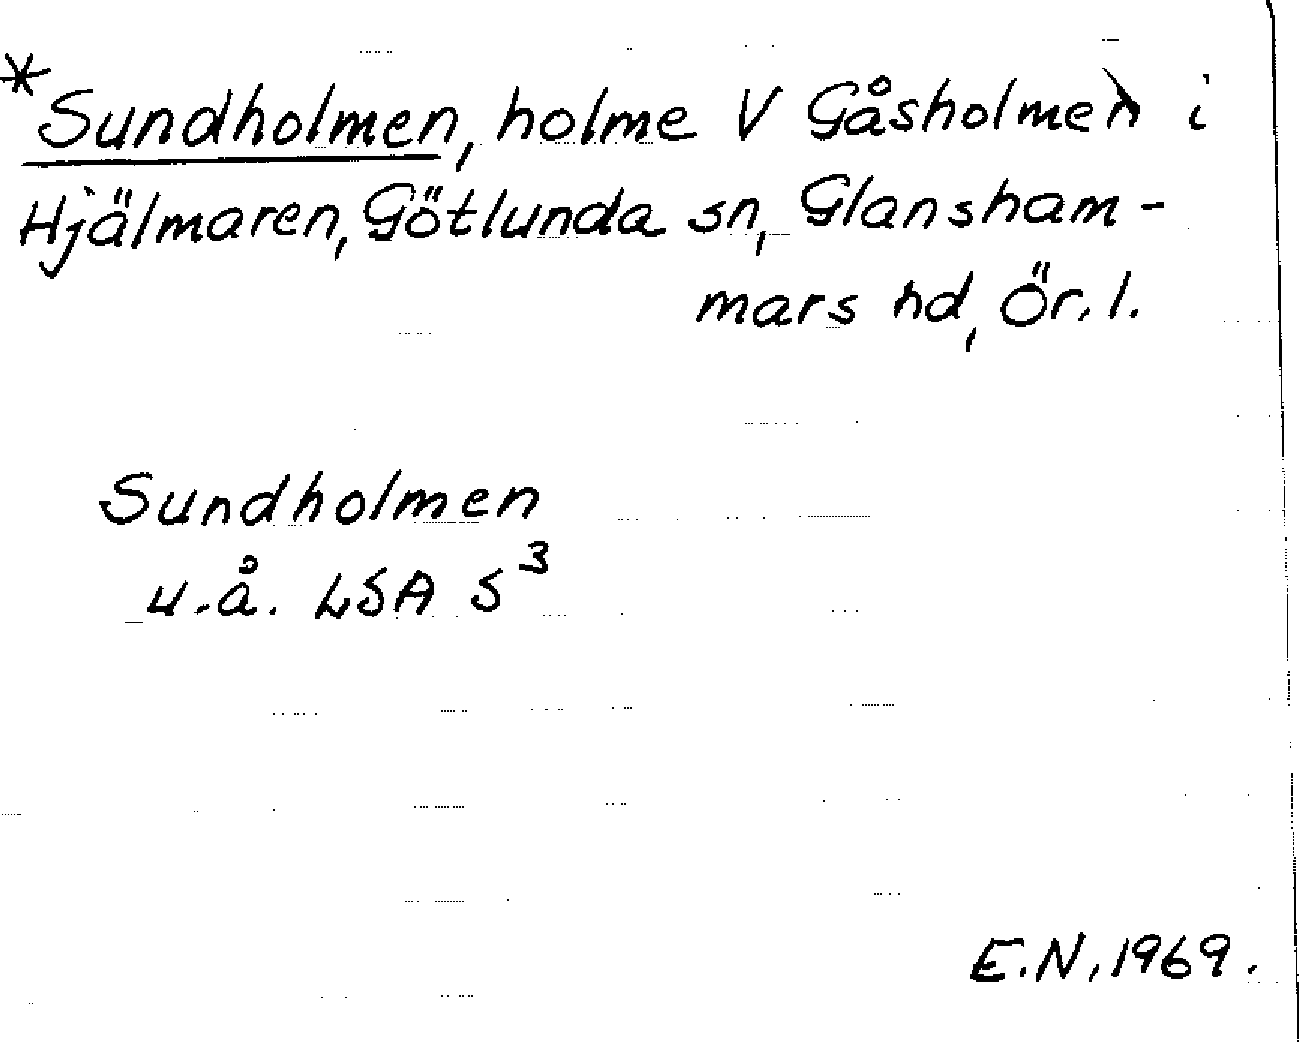 *Sundholmen, holme V Gåsholmen i
Hjälmaren, Götlunda sn, Glansham-
mars hd, Ör.l.
Sundholmen
u.å. LSA S³
E.N. 1969.